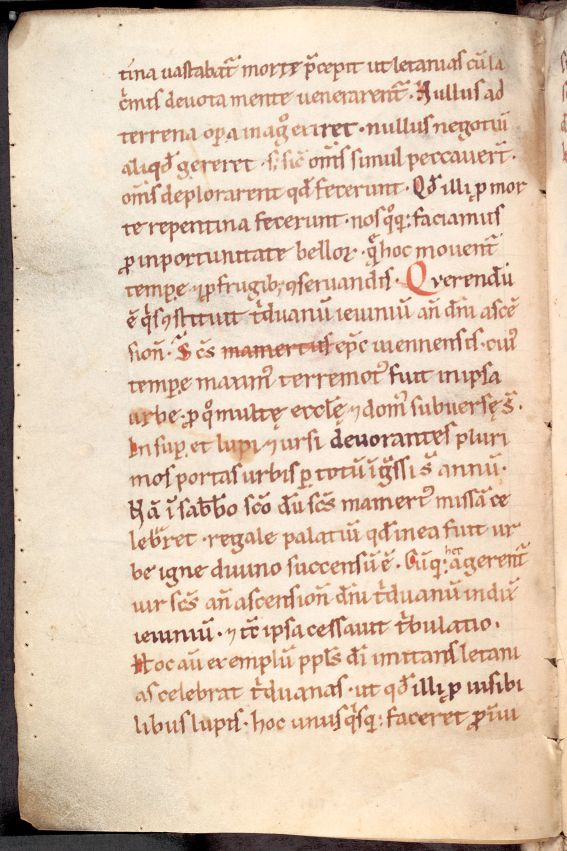 tina uastabat᷑ morte p̄cepit ut letanias cū la
c̄mis deuota mente uenerarent᷑. Nullus ad
terrena opa inagͦ eriret. nullus negotiū
aliqd̄ gereret. s; sic̄ om̄s simul peccauer̄t.
om̄s deplorarent qd̄ fecerunt. Qd̄ illi ꝓ mor
te repentina fecerunt. nos qͦq; faciamus
ꝓ inportunitate bellor. q̄ hoc mouent᷑
tempe. ⁊ ꝓ frugib; ꝯseruandis. Querendū
ē qͥs ꝯstituit t̄duanū ieiuniū an̄ dn̄i ascē
sion̄. S c̄s mamertus ep̄c uiennensis. cuiꝰ
tempe maximꝰ terremotꝰ fuit in ipsa
urbe. ꝓ qͦ multę eccłę ⁊ domꝰ subuersę s̄.
Insup̄ et lupi ⁊ ursi deuorantes pluri
mos portas urbis p̄ totū īgͤssi s̄ annū.
Nā ī sabb̄o sc̄o dū sc̄s mamertꝰ missā ce
lebret. regale palatiū qd̄ in ea fuit ur
be igne diuino succensū ē. Cūq; hęc agerent᷑
uir sc̄s an̄ ascension̄ dn̄i t̄duanū indix̄
ieiuniū. ⁊ tc̄ ipsa cessauit t̄bulatio.
Hoc aū exemplū ppl̄s dī imitans letani
as celebrat t̄duanas. ut qd̄ illi ꝓ uisibi
libus lupis. hoc unus qͥsq; faceret ꝓ īui